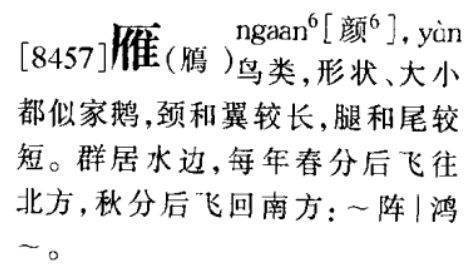 [8457]雁(鴈)ngaan⁶[颜⁶],yàn
鸟类,形状、大小
都似家鹅,颈和翼较长,腿和尾较
短。群居水边,每年春分后飞往
北方,秋分后飞回南方:~阵|鸿
~。